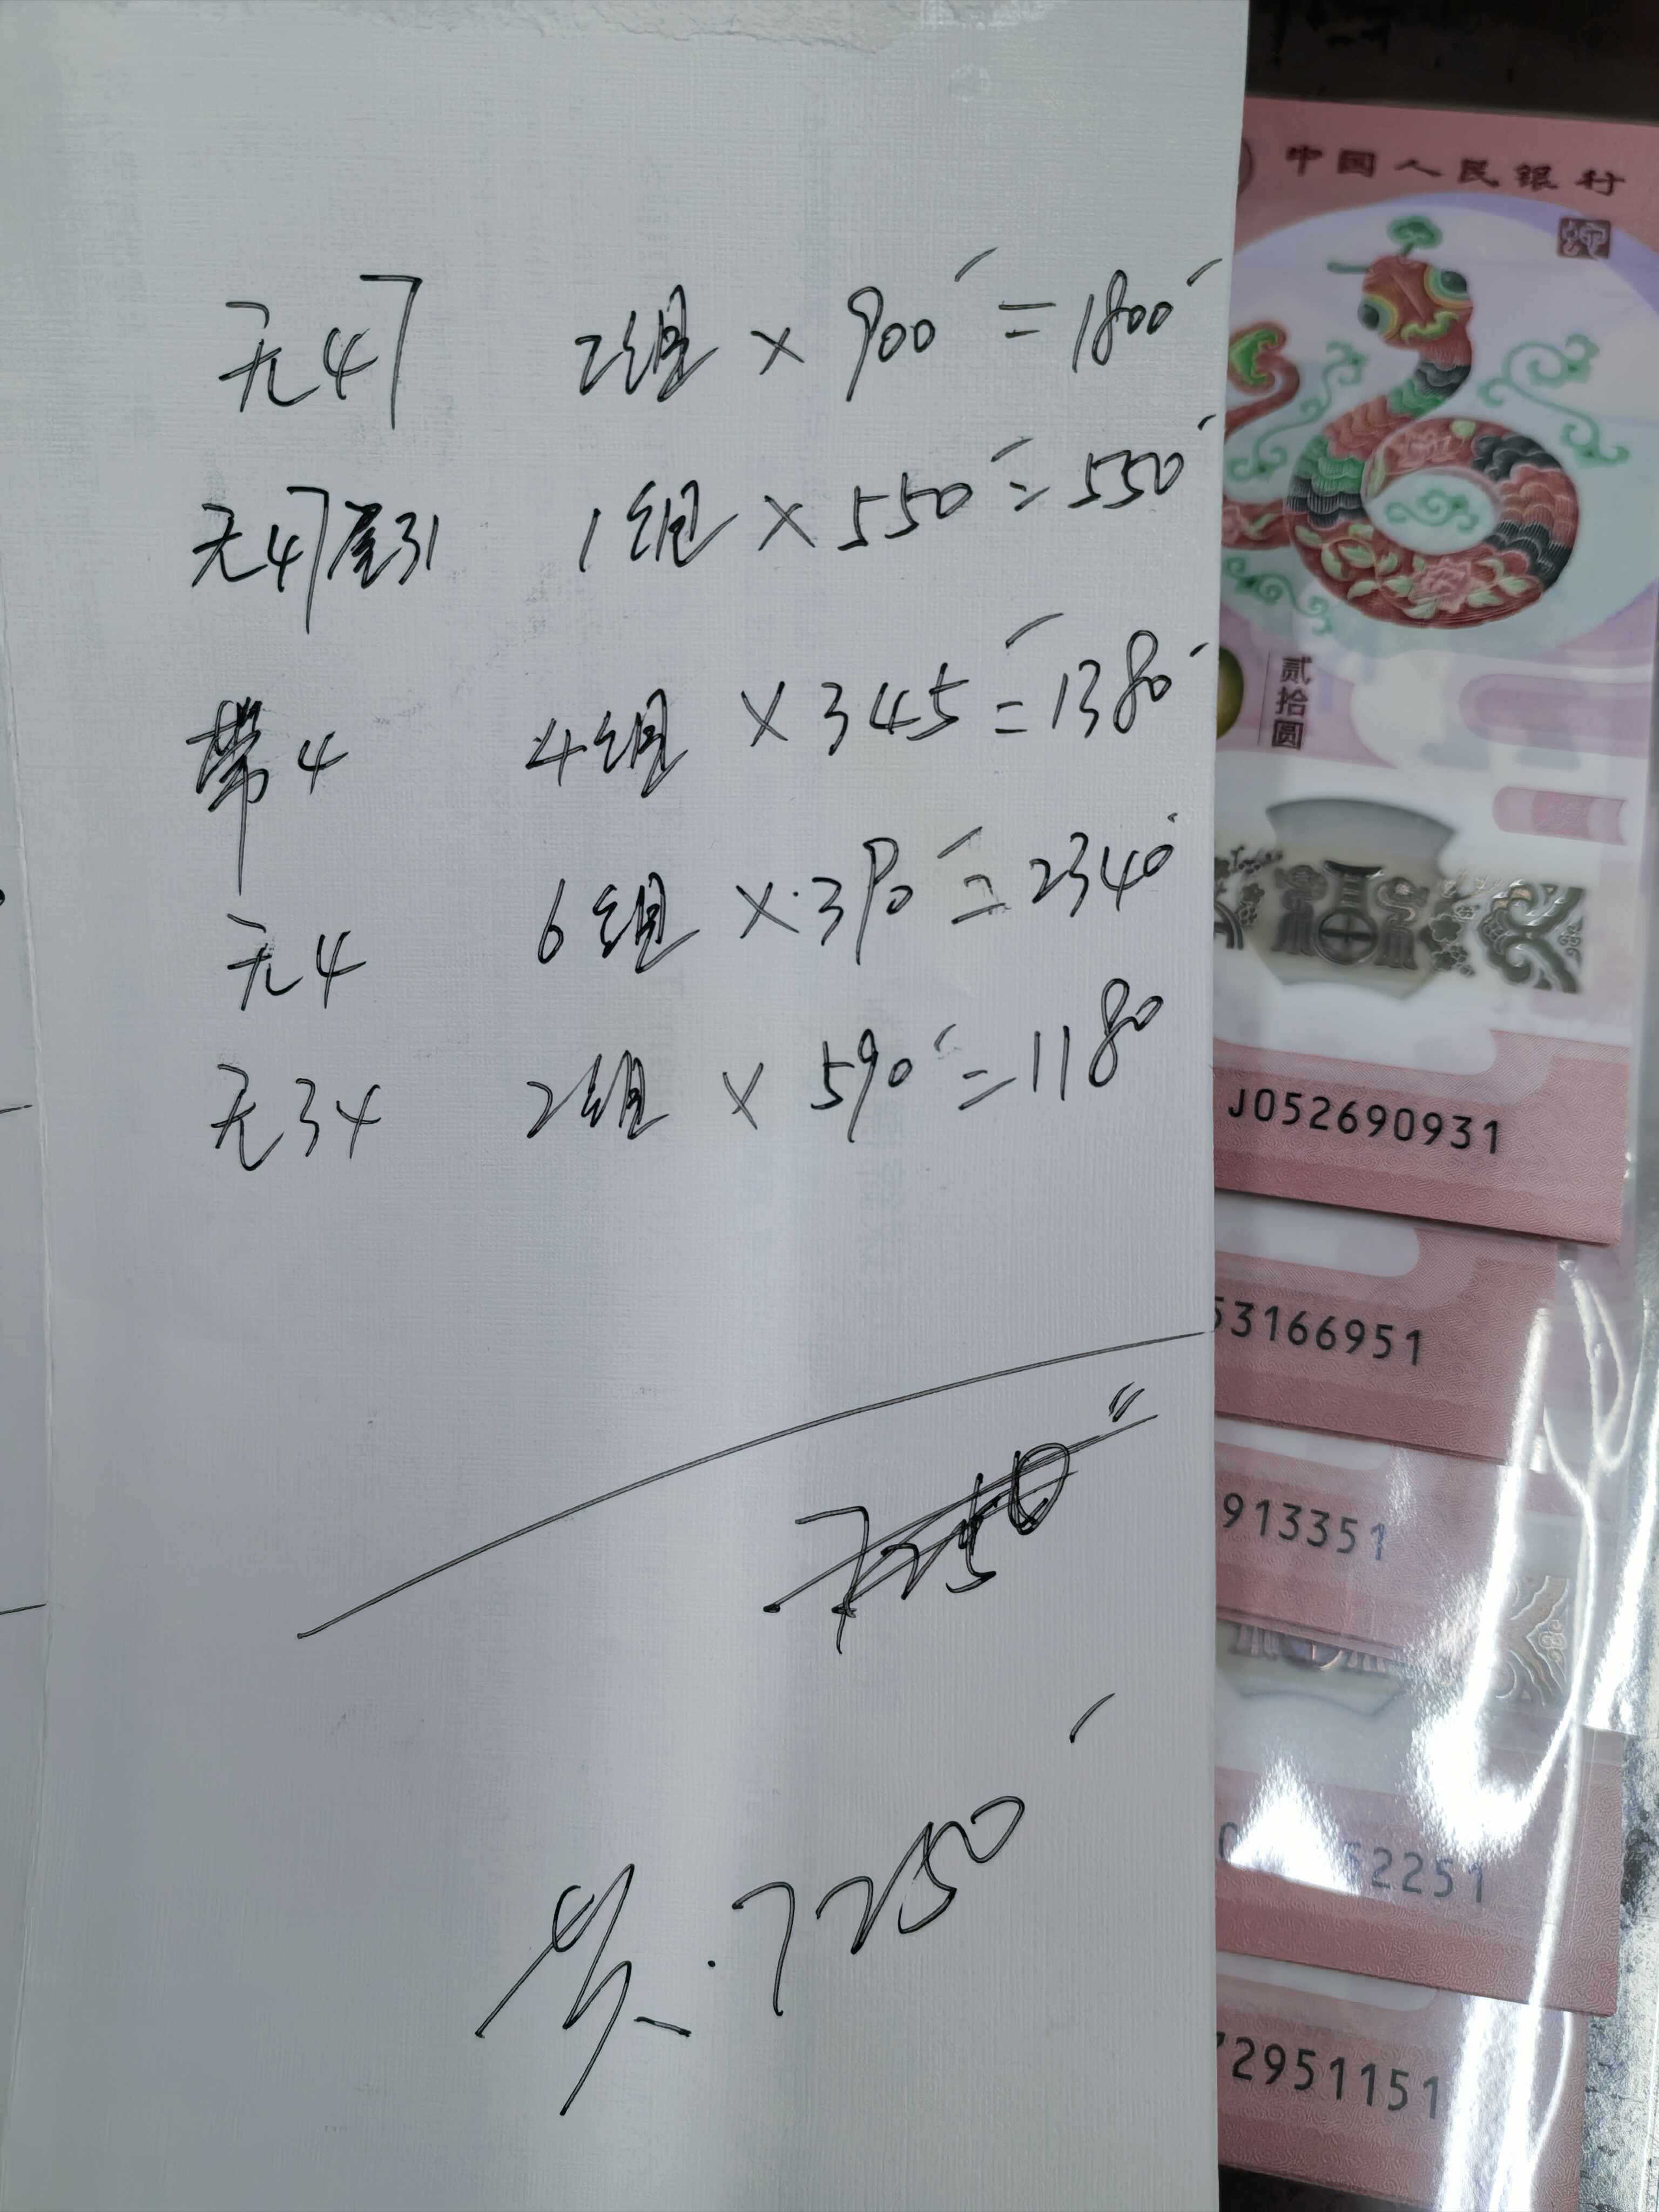 无47 2组 × 900 = 1800
无47尾31 1组 × 550 = 550
带4 4组 × 345 = 1380
无4 6组 × 390 = 2340
无34 2组 × 590 = 1180
7250
7250
中国人民银行
蛇
贰拾圆
J052690931
53166951
913351
52251
72951151